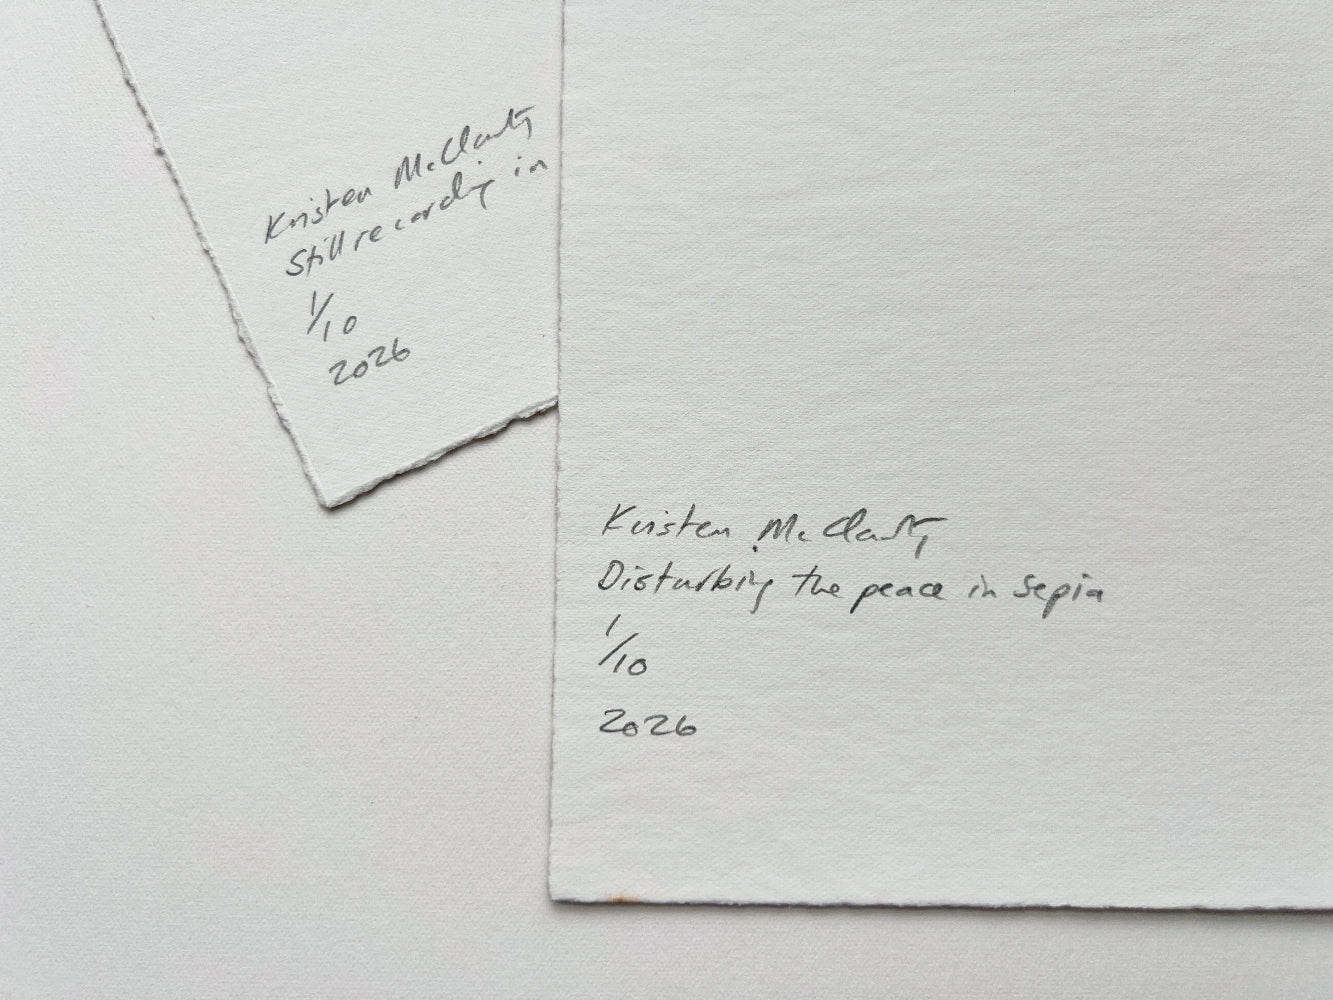 Kristen McClarty
Still recording in
1/10
2026
Kristen McClarty
Disturbing the peace in Sepia
1/10
2026